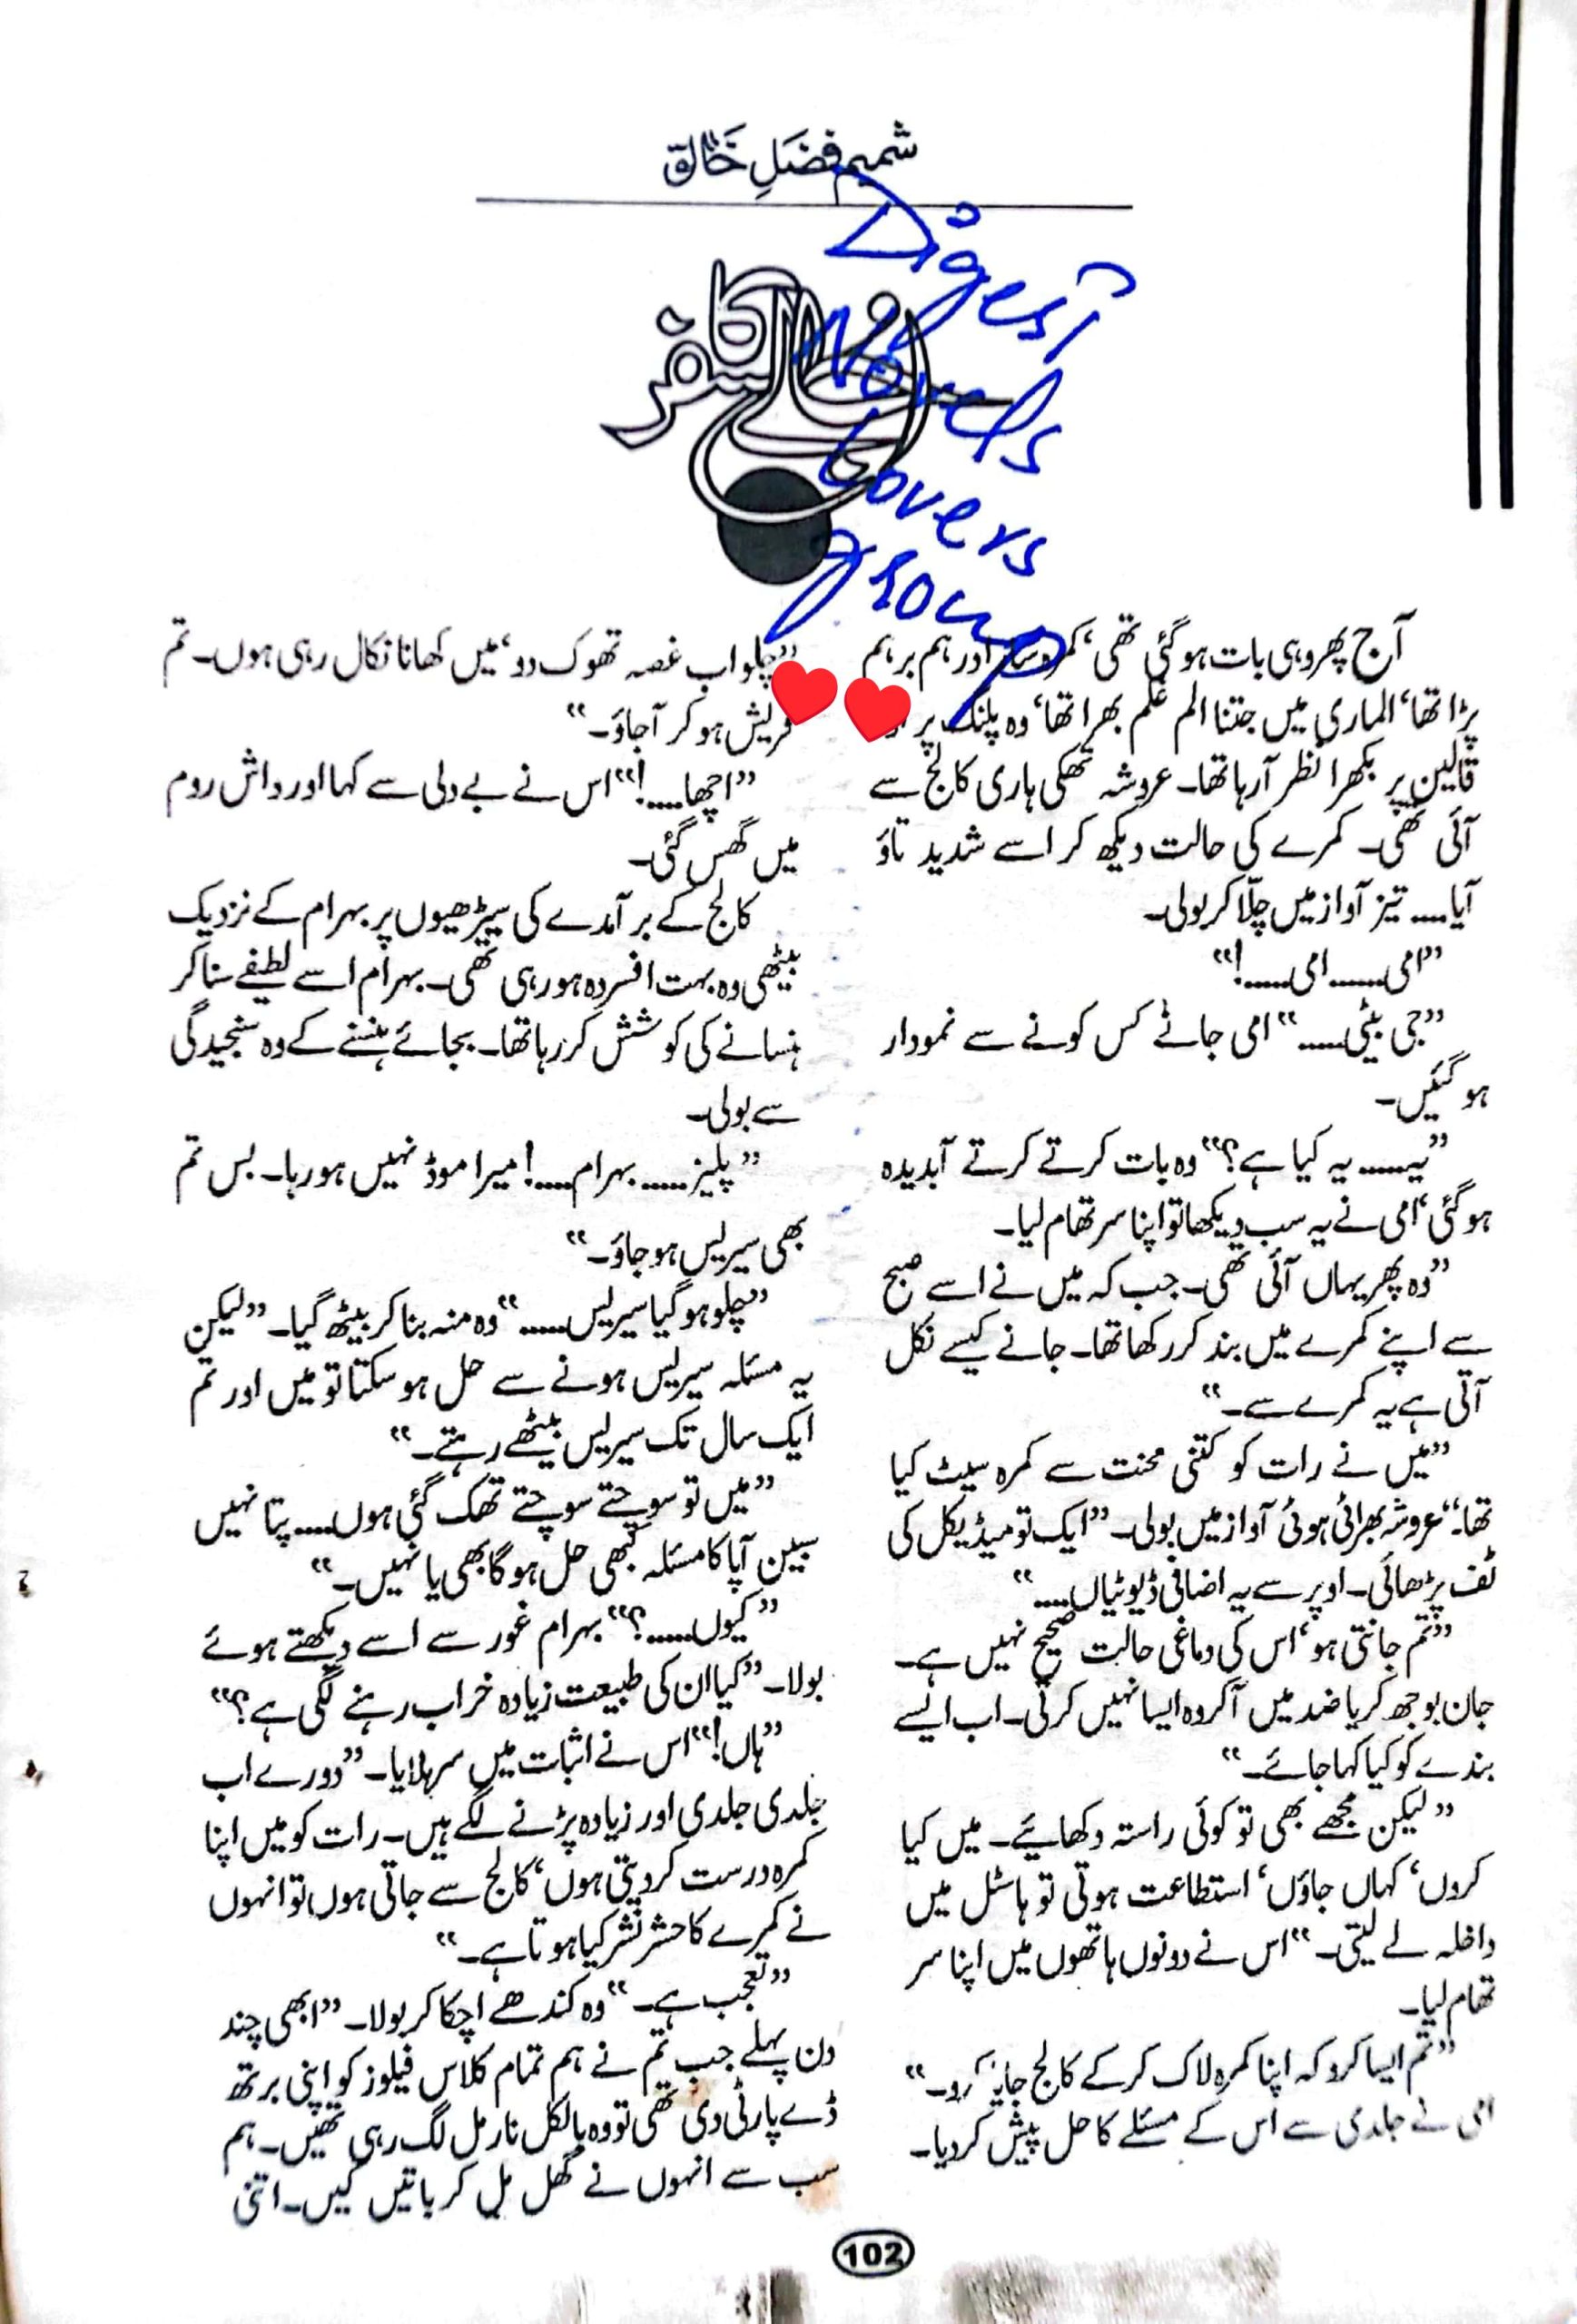 شمیم فضلِ خالق
Digest
Novels
Lovers
group
کا سفر
آج پھر وہی بات ہو گئی تھی، کمرہ سارا درہم برہم
پڑا تھا، الماری میں جتنا الم غلم بھرا تھا، وہ پلنگ پر
قالین پر بکھرا نظر آرہا تھا۔ عروشہ تھکی ہاری کالج سے
آئی تھی۔ کمرے کی حالت دیکھ کر اسے شدید تاؤ
آیا.... تیز آواز میں چلّا کر بولی۔
”امی...... امی.....!“
”جی بیٹی.....“ امی جانے کس کونے سے نمودار
ہو گئیں۔
”یہ..... یہ کیا ہے؟“ وہ بات کرتے کرتے آبدیدہ
ہو گئی، امی نے یہ سب دیکھا تو اپنا سر تھام لیا۔
”وہ پھر یہاں آئی تھی۔ جب کہ میں نے اسے صبح
سے اپنے کمرے میں بند کر رکھا تھا۔ جانے کیسے نکل
آتی ہے یہ کمرے سے۔“
”میں نے رات کو کتنی محنت سے کمرہ سیٹ کیا
تھا۔“ عروشہ بھرائی ہوئی آواز میں بولی۔ ”ایک تو میڈیکل کی
ٹف پڑھائی۔ اوپر سے یہ اضافی ڈیوٹیاں....“
”تم جانتی ہو، اس کی دماغی حالت صحیح نہیں ہے۔
جان بوجھ کر یا ضد میں آکر وہ ایسا نہیں کرتی۔ اب ایسے
بندے کو کیا کہا جائے۔“
”لیکن مجھے بھی تو کوئی راستہ دکھائیے۔ میں کیا
کروں، کہاں جاؤں، استطاعت ہوتی تو ہاسٹل میں
داخلہ لے لیتی۔“ اس نے دونوں ہاتھوں میں اپنا سر
تھام لیا۔
”تم ایسا کرو کہ اپنا کمرہ لاک کر کے کالج جایا کرو۔“
امی نے جلدی سے اس کے مسئلے کا حل پیش کر دیا۔
”چلو اب غصہ تھوک دو، میں کھانا نکال رہی ہوں۔ تم
فریش ہو کر آجاؤ۔“
”اچھا....!“ اس نے بے دلی سے کہا اور واش روم
میں گھس گئی۔
کالج کے برآمدے کی سیڑھیوں پر بہرام کے نزدیک
بیٹھی وہ بہت افسردہ ہو رہی تھی۔ بہرام اسے لطیفے سنا کر
ہنسانے کی کوشش کر رہا تھا۔ بجائے ہنسنے کے وہ سنجیدگی
سے بولی۔
”پلیز..... بہرام....! میرا موڈ نہیں ہو رہا۔ بس تم
بھی سیریس ہو جاؤ۔“
”چلو ہو گیا سیریس.....“ وہ منہ بنا کر بیٹھ گیا۔ ”لیکن
یہ مسئلہ سیریس ہونے سے حل ہو سکتا تو میں اور تم
ایک سال تک سیریس بیٹھے رہتے۔“
”میں تو سوچتے سوچتے تھک گئی ہوں.... پتا نہیں
سبین آپا کا مسئلہ کبھی حل ہو گا بھی یا نہیں۔“
”کیوں.....؟“ بہرام غور سے اسے دیکھتے ہوئے
بولا۔ ”کیا ان کی طبیعت زیادہ خراب رہنے لگی ہے؟“
”ہاں!“ اس نے اثبات میں سر ہلایا۔ ”دورے اب
جلدی جلدی اور زیادہ پڑنے لگے ہیں۔ رات کو میں اپنا
کمرہ درست کر دیتی ہوں، کالج سے جاتی ہوں تو انہوں
نے کمرے کا حشر نشر کیا ہوتا ہے۔“
”تعجب ہے۔“ وہ کندھے اچکا کر بولا۔ ”ابھی چند
دن پہلے جب تم نے ہم تمام کلاس فیلوز کو اپنی برتھ
ڈے پارٹی دی تھی تو وہ بالکل نارمل لگ رہی تھیں۔ ہم
سب سے انہوں نے گھل مل کر باتیں کیں۔ اتنی
102